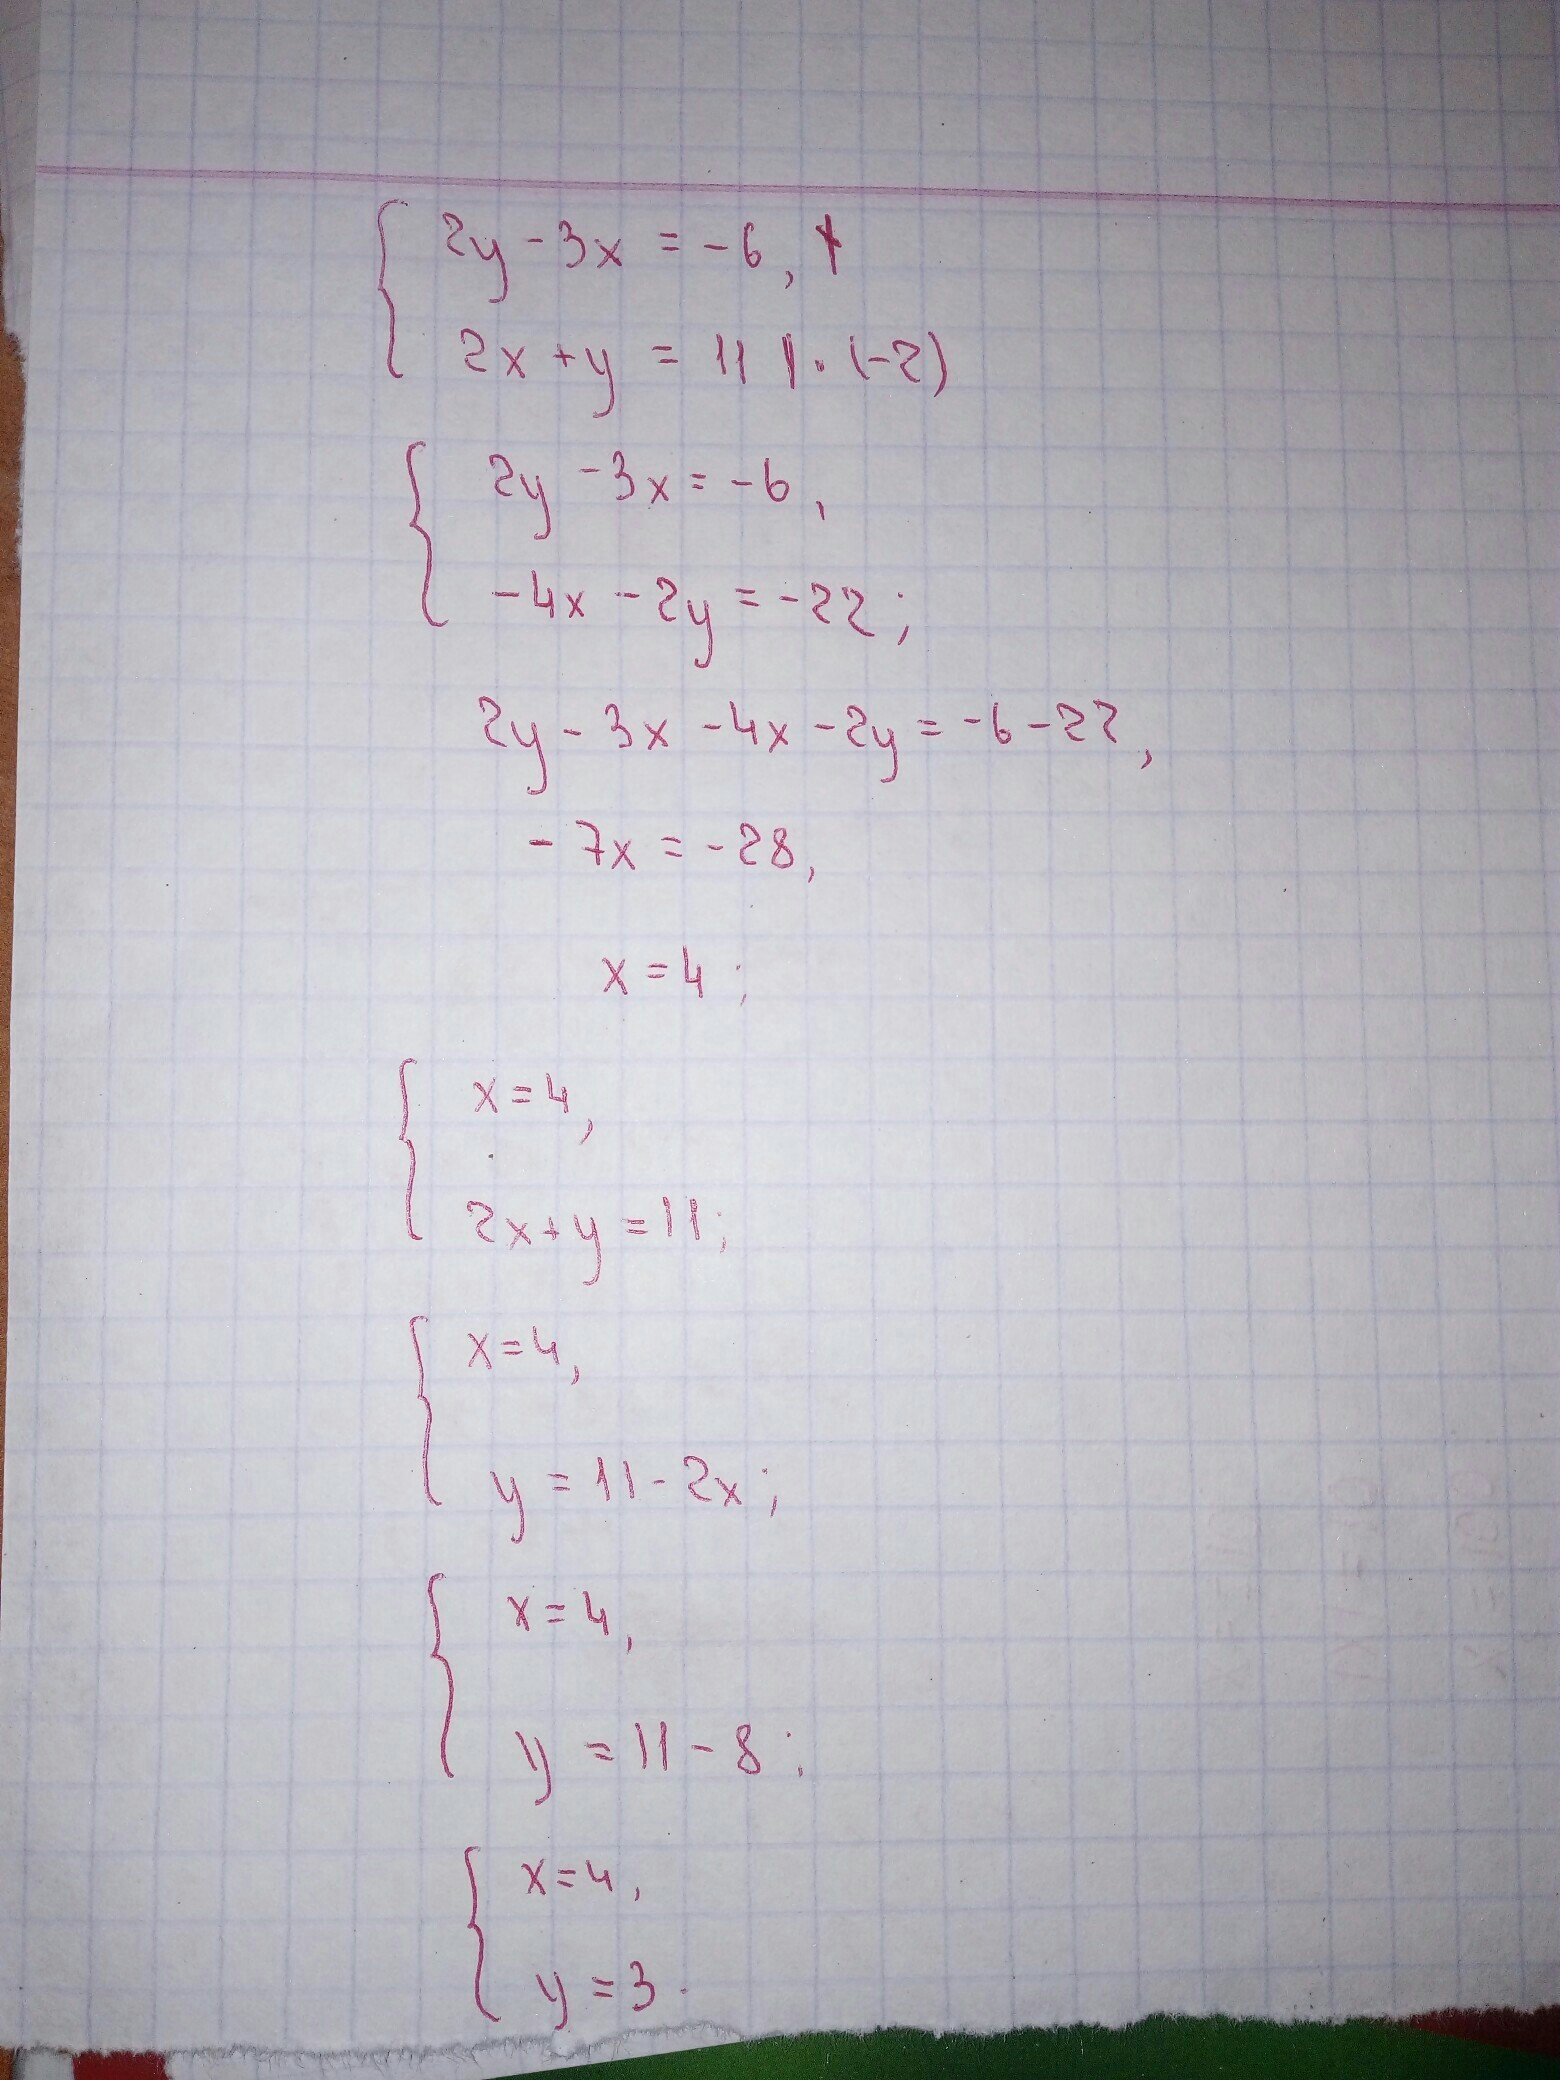 2y - 3x = -6,
2x + y = 11 | · (-2)
2y - 3x = -6,
-4x - 2y = -22;
2y - 3x - 4x - 2y = -6 - 22,
-7x = -28,
x = 4;
x = 4,
2x + y = 11;
x = 4,
y = 11 - 2x;
x = 4,
y = 11 - 8;
x = 4,
y = 3.